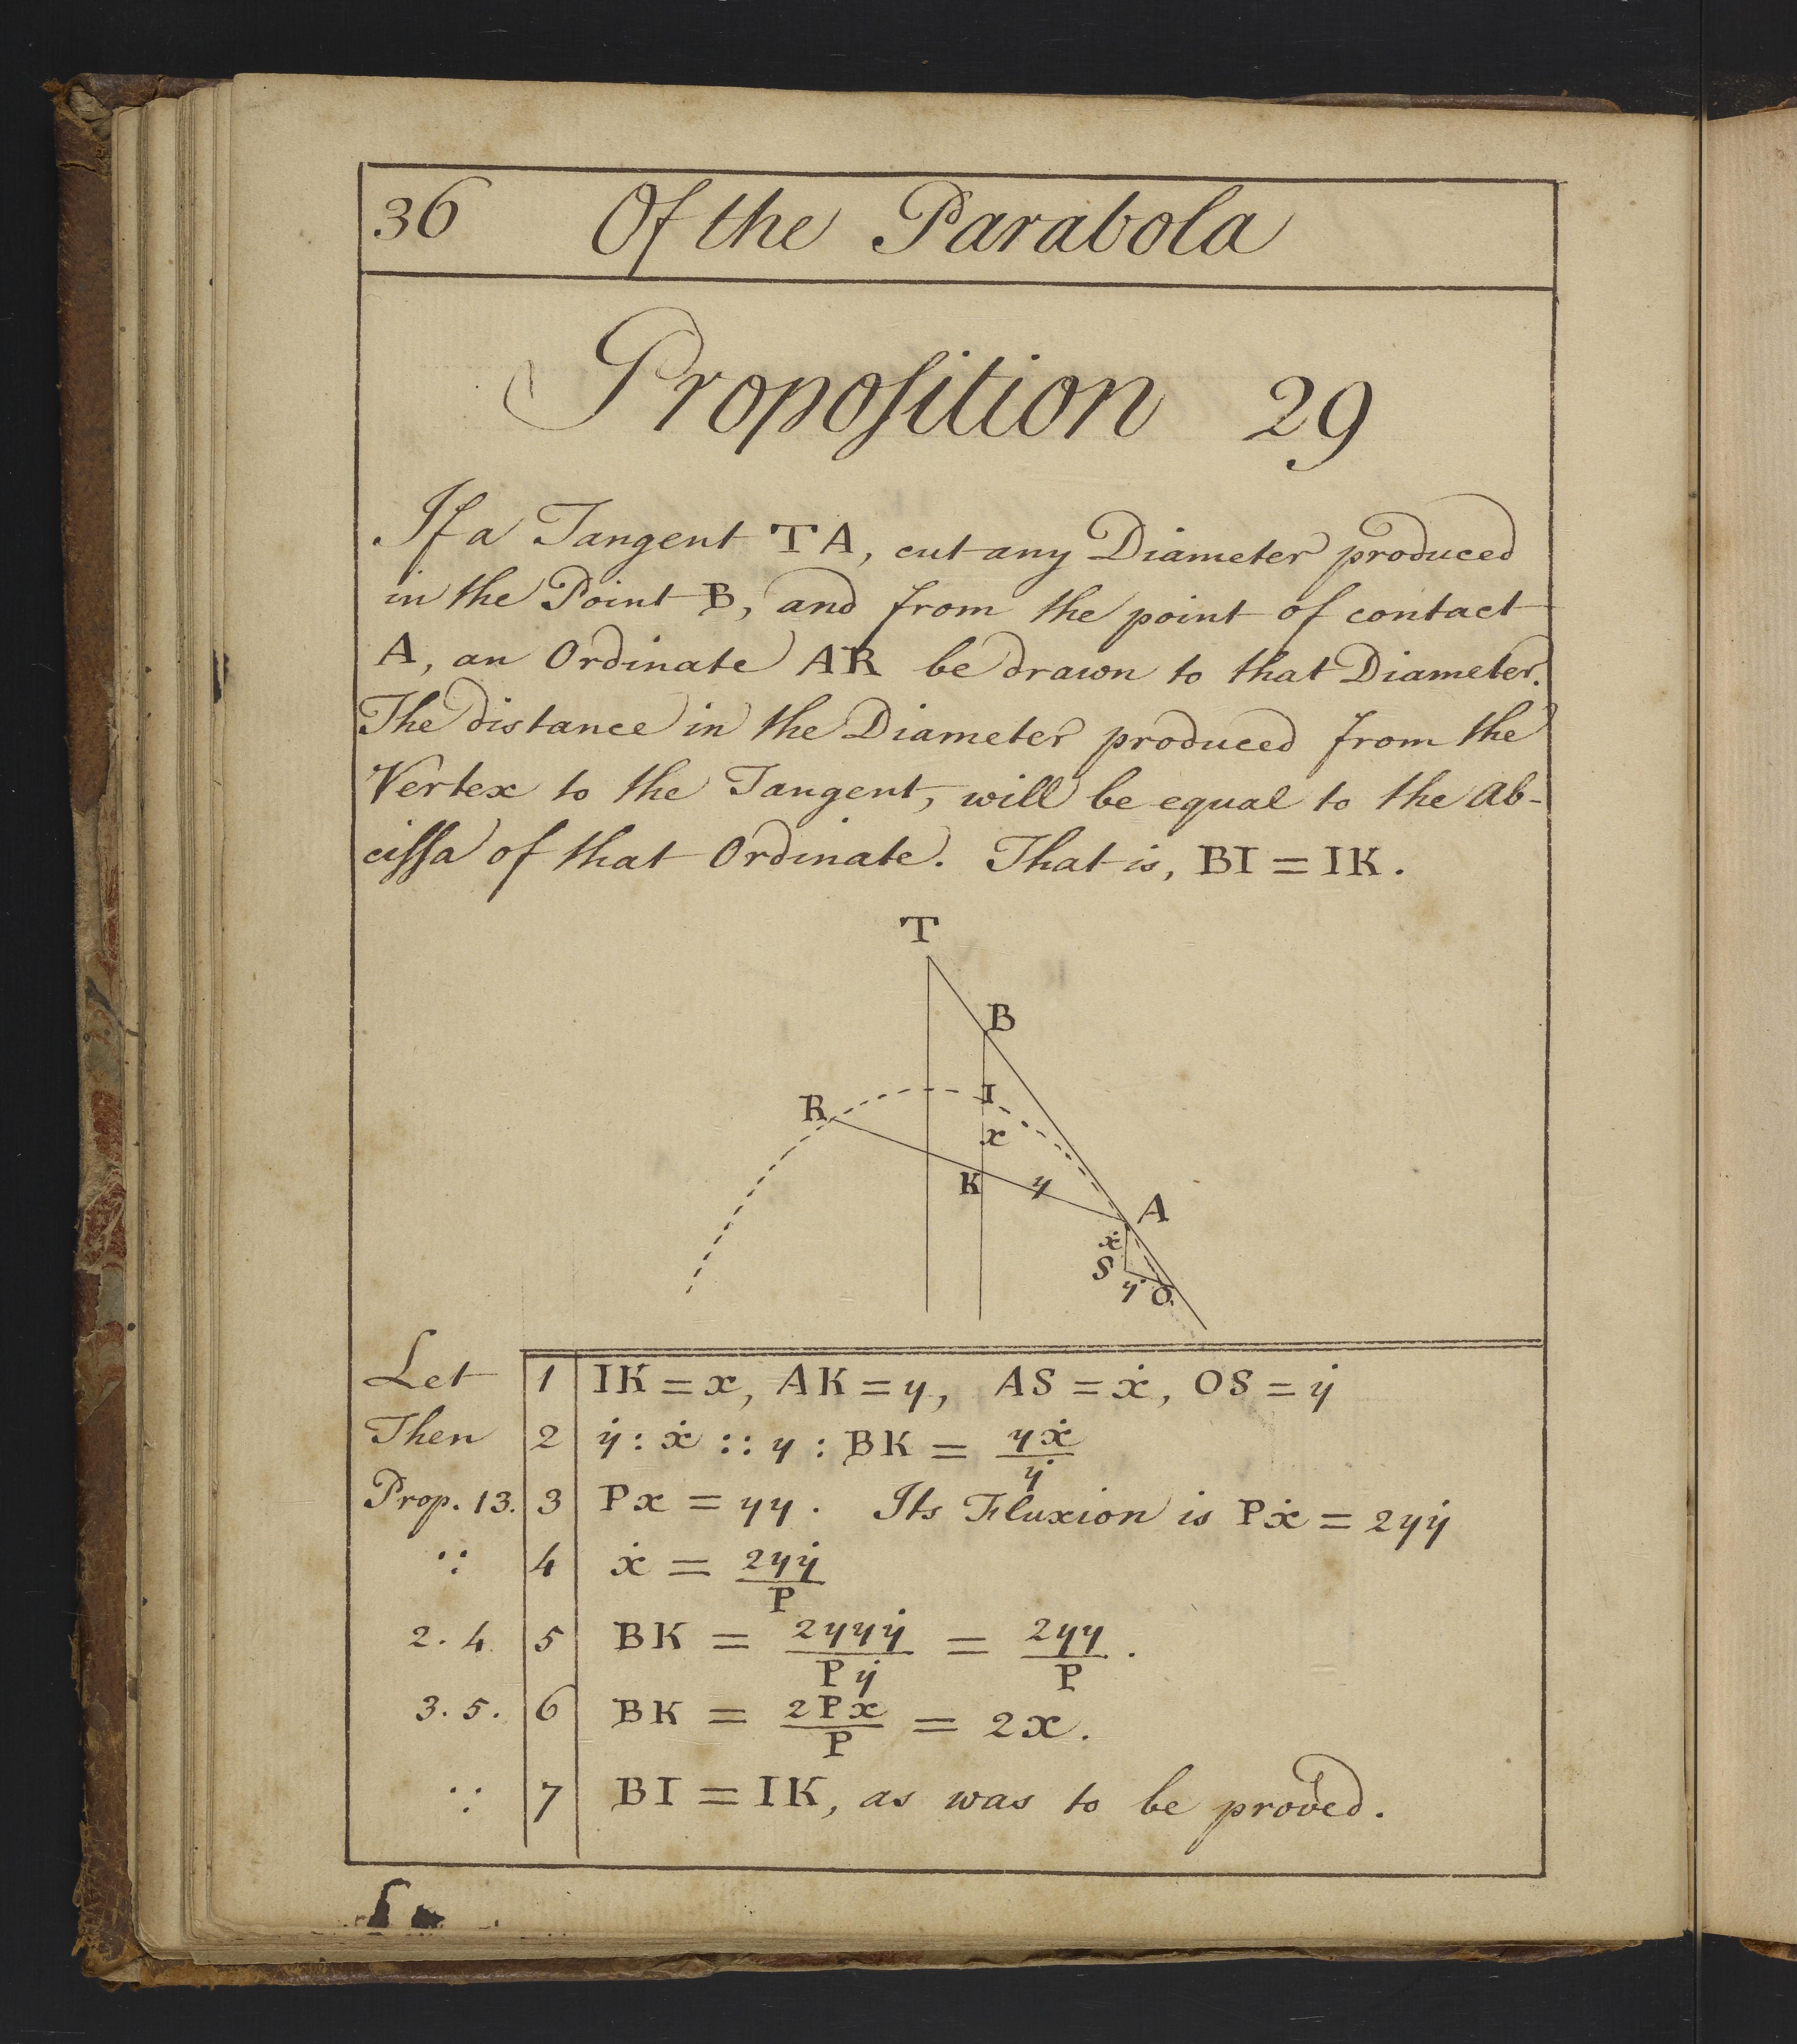 36 Of the Parabola
Proposition 29
If a Tangent TA, cut any Diameter produced
in the Point B, and from the point of contact
A, an Ordinate AR be drawn to that Diameter.
The distance in the Diameter produced from the
Vertex to the Tangent, will be equal to the Ab-
cissa of that Ordinate. That is, BI = IK.
T
B
I
R
x
K y
A
ẋ
S
ẏ O
Let 1 IK = x, AK = y, AS = ẋ, OS = ẏ
Then 2 ẏ : ẋ :: y : BK = yẋ/ẏ
Prop. 13. 3 Px = yy. Its Fluxion is Pẋ = 2yẏ
∵ 4 ẋ = 2yẏ/P
2. 4 5 BK = 2yyẏ/Pẏ = 2yy/P.
3. 5. 6 BK = 2Px/P = 2x.
∵ 7 BI = IK, as was to be proved.